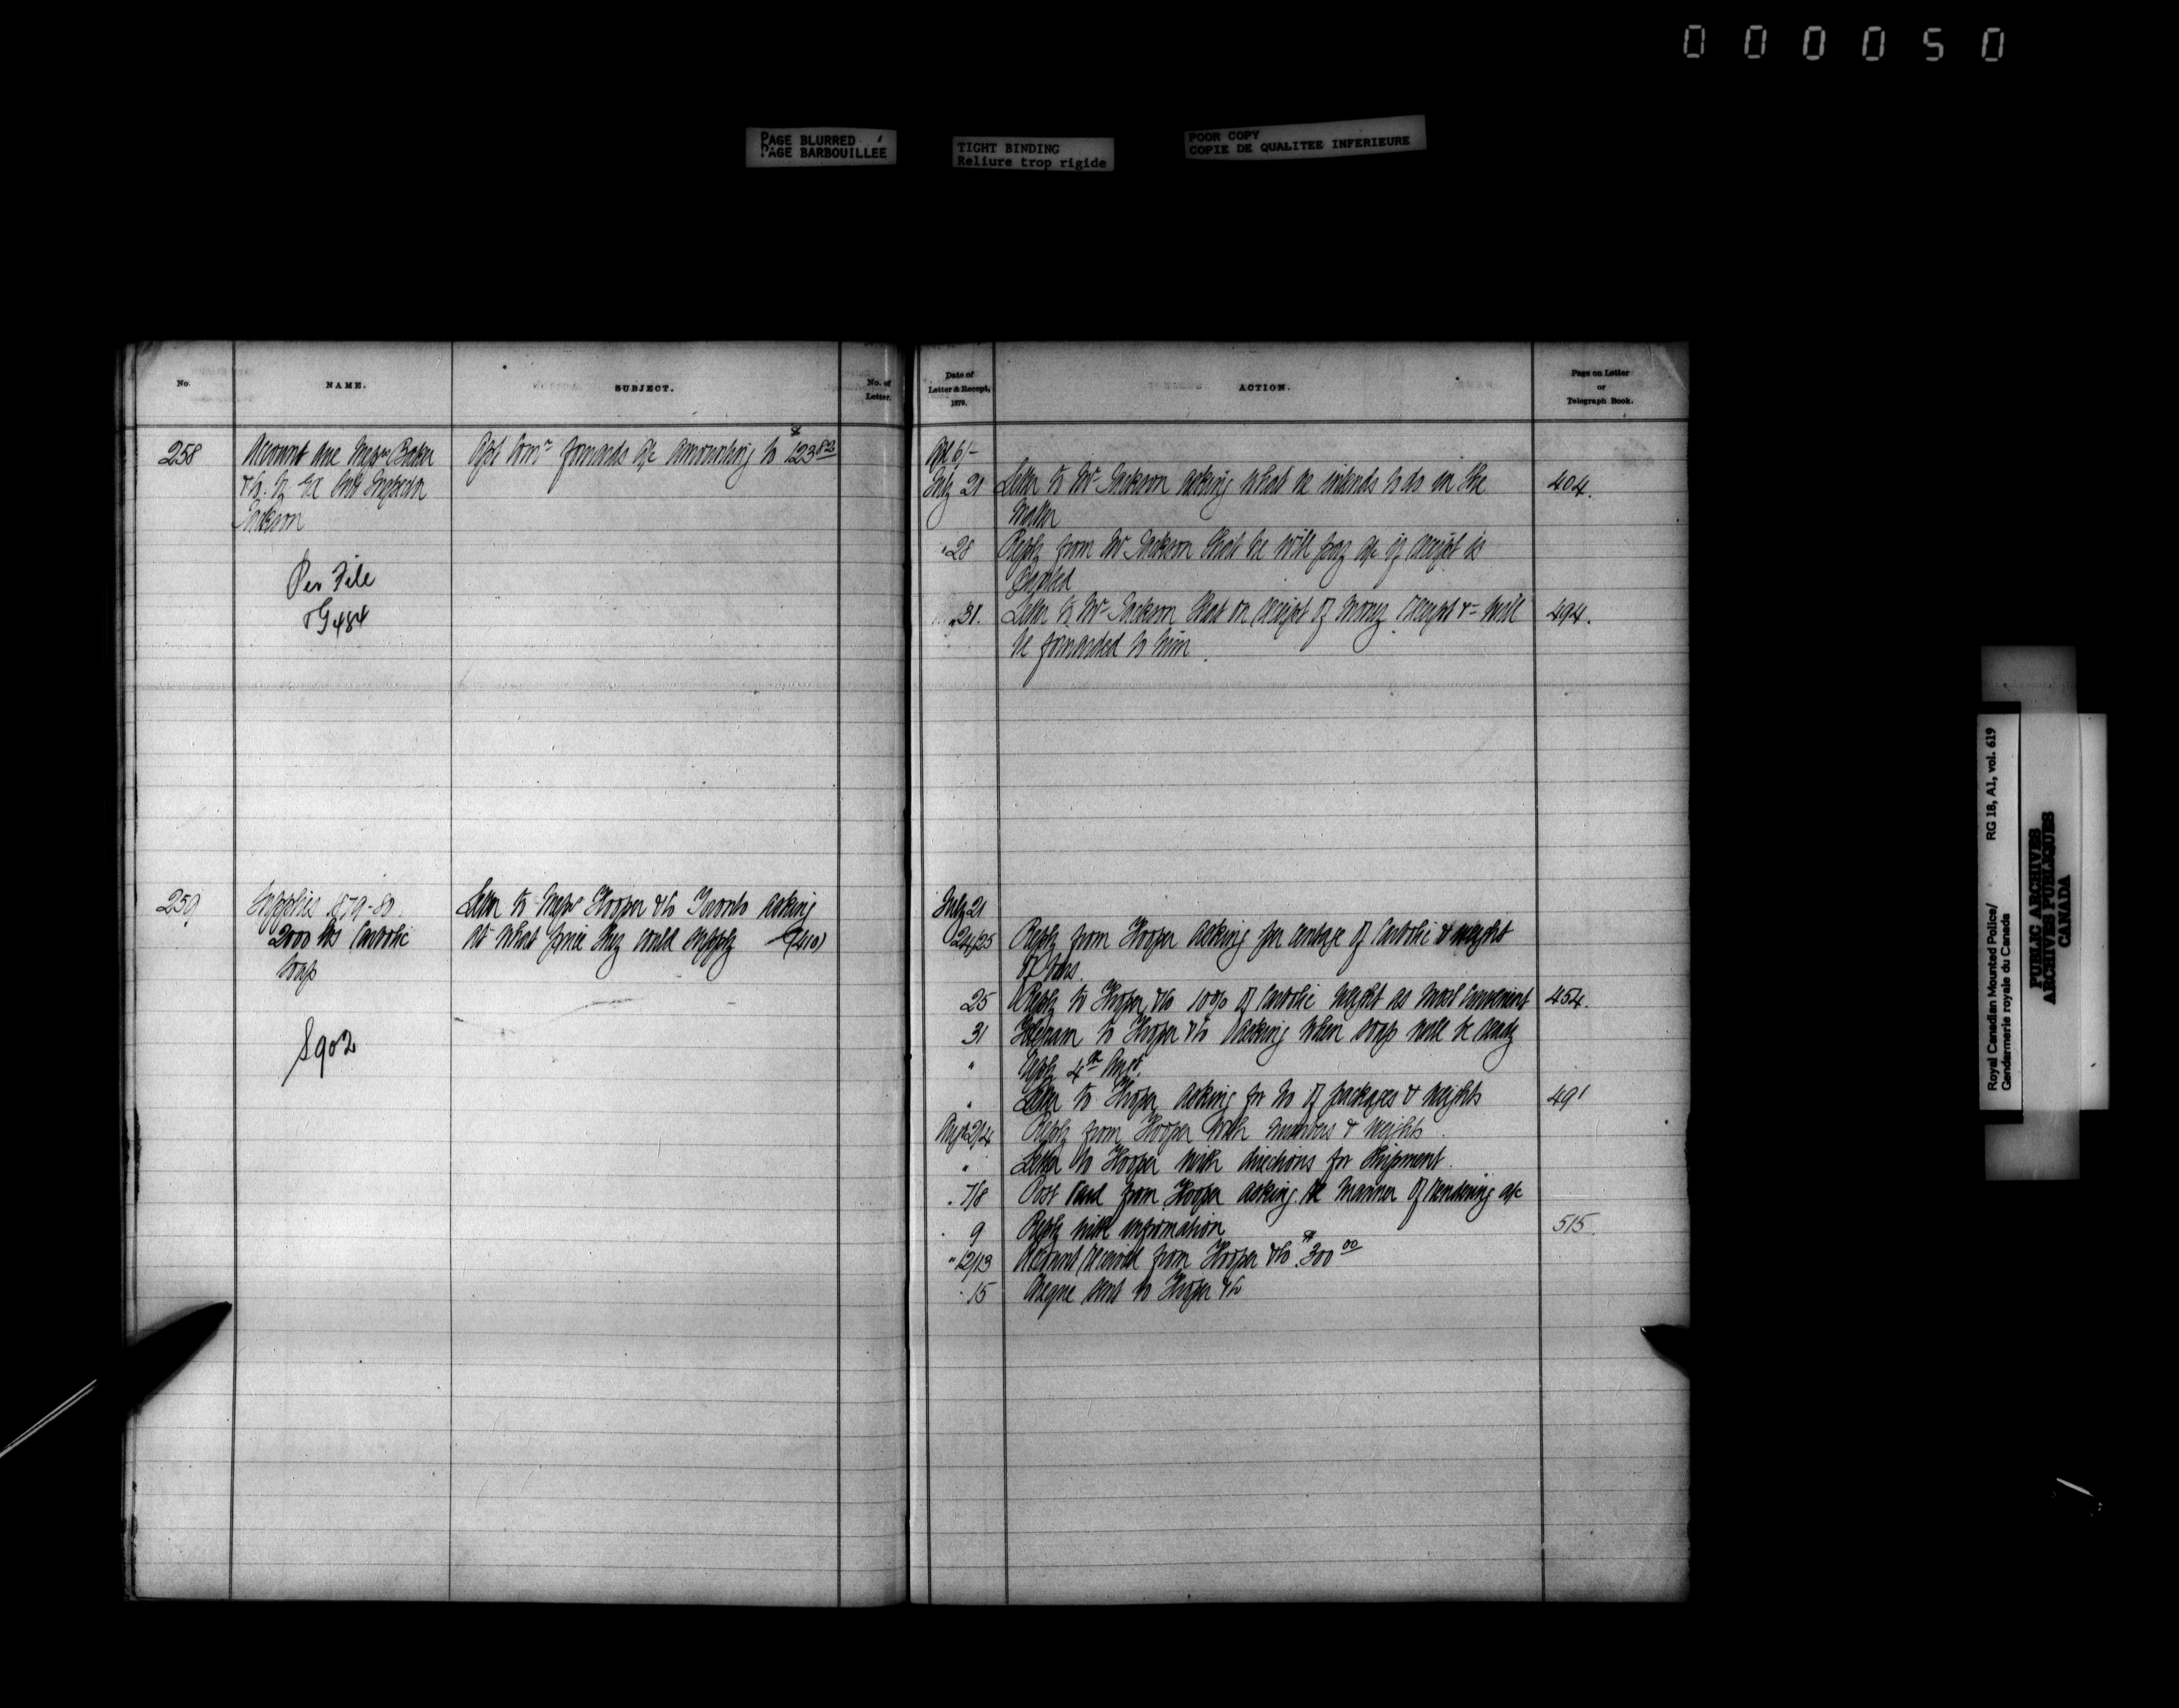 000050
PAGE BLURRED
PAGE BARBOUILLEE
TIGHT BINDING
Reliure trop rigide
POOR COPY
COPIE DE QUALITEE INFERIEURE
No.
NAME.
SUBJECT.
No. of
Letter.
Date of
Letter & Recept,
1879.
ACTION.
Page on Letter
or
Telegraph Book.
258
Account due Messrs Baker
& Co. by Ex Sub Inspector
Jackson
Per File
G484
Asst Comr forwards a/c amounting to $123 82
Apl 6/-
July 21 Letter to Mr Jackson asking what he intends to do in the 404.
matter
" 28 Reply from Mr Jackson that he will pay a/c if receipt is
" 31. Letter to Mr Jackson that on receipt of money receipt &c will 494.
be forwarded to him.
259
Supplies 1879-80.
2000 lbs Carbolic
Soap
S902
Letter to Messrs Hooper & Co Toronto asking
at what price they could supply (410)
July 21
24/25 Reply from Hooper asking per centage of Carbolic & weight
of bars.
25 Reply to Hooper & Co 10% of Carbolic weight as most convenient 454.
31 Telegram to Hooper & Co asking when soap will be ready
" Reply 4th Augt.
" Letter to Hooper asking for No of packages & weights 491
Augt 2/4 Reply from Hooper with numbers & weights.
" Letter to Hooper with directions for shipment.
" 7/8 Post Card from Hooper asking re manner of rendering a/c
" 9 Reply with information 515
" 12/13 Account received from Hooper & Co $300 00
" 15 Cheque sent to Hooper & Co
Royal Canadian Mounted Police/ RG 18, A1, vol. 619
Gendarmerie royale du Canada
PUBLIC ARCHIVES
ARCHIVES PUBLIQUES
CANADA